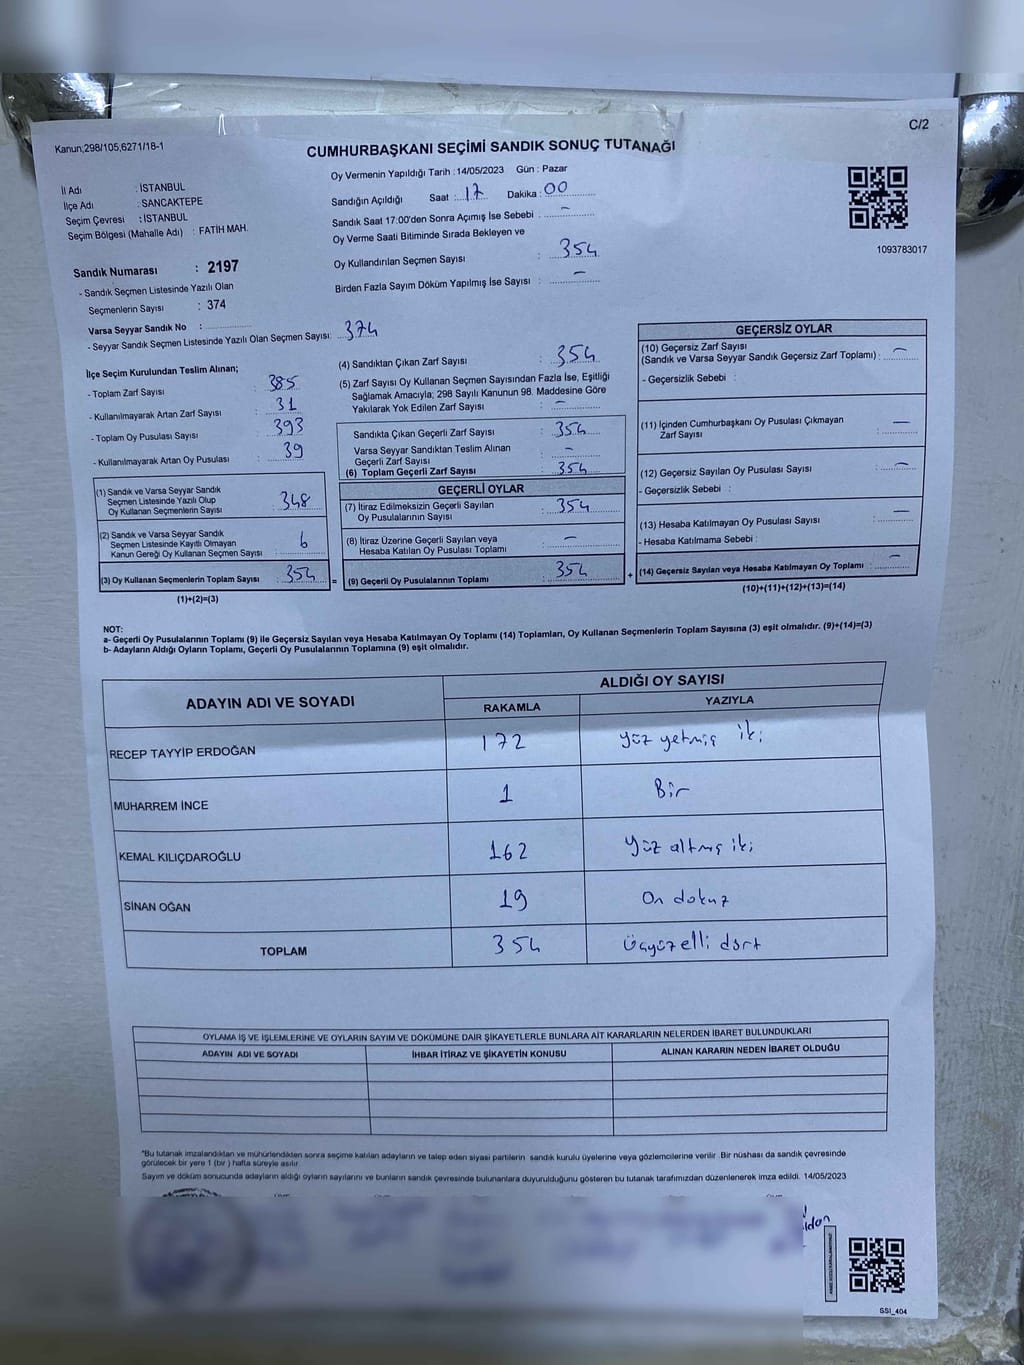 C/2
Kanun;298/105,6271/18-1
CUMHURBAŞKANI SEÇİMİ SANDIK SONUÇ TUTANAĞI
Oy Vermenin Yapıldığı Tarih : 14/05/2023 Gün : Pazar
İl Adı : İSTANBUL
İlçe Adı : SANCAKTEPE
Seçim Çevresi : İSTANBUL
Seçim Bölgesi (Mahalle Adı) : FATİH MAH.
Sandığın Açıldığı Saat : 17 Dakika : 00
Sandık Saat 17:00'den Sonra Açımış İse Sebebi : —
Oy Verme Saati Bitiminde Sırada Bekleyen ve
Oy Kullandırılan Seçmen Sayısı : 354
Birden Fazla Sayım Döküm Yapılmış İse Sayısı : —
1093783017
Sandık Numarası : 2197
- Sandık Seçmen Listesinde Yazılı Olan
Seçmenlerin Sayısı : 374
Varsa Seyyar Sandık No :
- Seyyar Sandık Seçmen Listesinde Yazılı Olan Seçmen Sayısı: 374
İlçe Seçim Kurulundan Teslim Alınan;
- Toplam Zarf Sayısı : 385
- Kullanılmayarak Artan Zarf Sayısı : 31
- Toplam Oy Pusulası Sayısı : 393
- Kullanılmayarak Artan Oy Pusulası : 39
(1) Sandık ve Varsa Seyyar Sandık
Seçmen Listesinde Yazılı Olup
Oy Kullanan Seçmenlerin Sayısı : 348
(2) Sandık ve Varsa Seyyar Sandık
Seçmen Listesinde Kayıtlı Olmayan
Kanun Gereği Oy Kullanan Seçmen Sayısı : 6
(3) Oy Kullanan Seçmenlerin Toplam Sayısı : 354 =
(1)+(2)=(3)
(4) Sandıktan Çıkan Zarf Sayısı : 354
(5) Zarf Sayısı Oy Kullanan Seçmen Sayısından Fazla İse, Eşitliği
Sağlamak Amacıyla; 298 Sayılı Kanunun 98. Maddesine Göre
Yakılarak Yok Edilen Zarf Sayısı : —
Sandıkta Çıkan Geçerli Zarf Sayısı : 354
Varsa Seyyar Sandıktan Teslim Alınan
Geçerli Zarf Sayısı : —
(6) Toplam Geçerli Zarf Sayısı : 354
GEÇERLİ OYLAR
(7) İtiraz Edilmeksizin Geçerli Sayılan
Oy Pusulalarının Sayısı : 354
(8) İtiraz Üzerine Geçerli Sayılan veya
Hesaba Katılan Oy Pusulası Toplamı : —
(9) Geçerli Oy Pusulalarının Toplamı : 354 +
GEÇERSİZ OYLAR
(10) Geçersiz Zarf Sayısı
(Sandık ve Varsa Seyyar Sandık Geçersiz Zarf Toplamı) : —
- Geçersizlik Sebebi :
(11) İçinden Cumhurbaşkanı Oy Pusulası Çıkmayan
Zarf Sayısı : —
(12) Geçersiz Sayılan Oy Pusulası Sayısı : —
- Geçersizlik Sebebi :
(13) Hesaba Katılmayan Oy Pusulası Sayısı : —
- Hesaba Katılmama Sebebi :
(14) Geçersiz Sayılan veya Hesaba Katılmayan Oy Toplamı : —
(10)+(11)+(12)+(13)=(14)
NOT:
a- Geçerli Oy Pusulalarının Toplamı (9) ile Geçersiz Sayılan veya Hesaba Katılmayan Oy Toplamı (14) Toplamları, Oy Kullanan Seçmenlerin Toplam Sayısına (3) eşit olmalıdır. (9)+(14)=(3)
b- Adayların Aldığı Oyların Toplamı, Geçerli Oy Pusulalarının Toplamına (9) eşit olmalıdır.
ADAYIN ADI VE SOYADI ALDIĞI OY SAYISI
RAKAMLA YAZIYLA
RECEP TAYYİP ERDOĞAN 172 yüz yetmiş iki
MUHARREM İNCE 1 Bir
KEMAL KILIÇDAROĞLU 162 yüz altmış iki
SİNAN OĞAN 19 On dokuz
TOPLAM 354 Üçyüzelli dört
OYLAMA İŞ VE İŞLEMLERİNE VE OYLARIN SAYIM VE DÖKÜMÜNE DAİR ŞİKAYETLERLE BUNLARA AİT KARARLARIN NELERDEN İBARET BULUNDUKLARI
ADAYIN ADI VE SOYADI İHBAR İTİRAZ VE ŞİKAYETİN KONUSU ALINAN KARARIN NEDEN İBARET OLDUĞU
"Bu tutanak imzalandıktan ve mühürlendikten sonra seçime katılan adayların ve talep eden siyasi partilerin sandık kurulu üyelerine veya gözlemcilerine verilir. Bir nüshası da sandık çevresinde
görülecek bir yere 1 (bir ) hafta süreyle asılır.
Sayım ve döküm sonucunda adayların aldığı oyların sayılarını ve bunların sandık çevresinde bulunanlara duyurulduğunu gösteren bu tutanak tarafımızdan düzenlenerek imza edildi. 14/05/2023
SSI_404